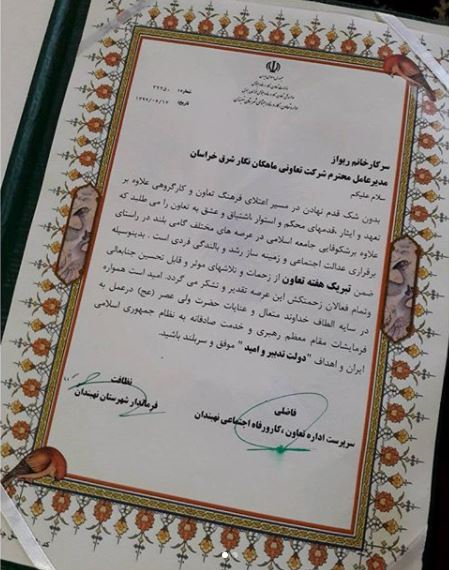 جمهوری اسلامی ایران
شماره: ۳۲۲۵۰
تاریخ: ۱۳۹۷/۰۶/۱۲
سرکار خانم ریواز
مدیرعامل محترم شرکت تعاونی ماهکان نگار شرق خراسان
سلام علیکم
بدون شک قدم نهادن در مسیر اعتلای فرهنگ تعاون و کارگروهی علاوه بر
تعهد و ایثار ،قدمهای محکم و استوار بااشتیاق و عشق به تعاون را می طلبد که
علاوه برشکوفایی جامعه اسلامی در عرصه های مختلف گامی بلند در راستای
برقراری عدالت اجتماعی و زمینه ساز رشد و بالندگی فردی است . بدینوسیله
ضمن تبریک هفته تعاون از زحمات و تلاشهای موثر و قابل تحسین جنابعالی
وتمام فعالان زحمتکش این عرصه تقدیر و تشکر می گردد. امید است همواره
در سایه الطاف خداوند متعال و عنایات حضرت ولی عصر (عج) درعمل به
فرمایشات مقام معظم رهبری و خدمت صادقانه به نظام جمهوری اسلامی
ایران و اهداف "دولت تدبیر و امید" موفق و سربلند باشید.
فاضلی
سرپرست اداره تعاون ،کارورفاه اجتماعی نهبندان
نظافت
فرماندار شهرستان نهبندان